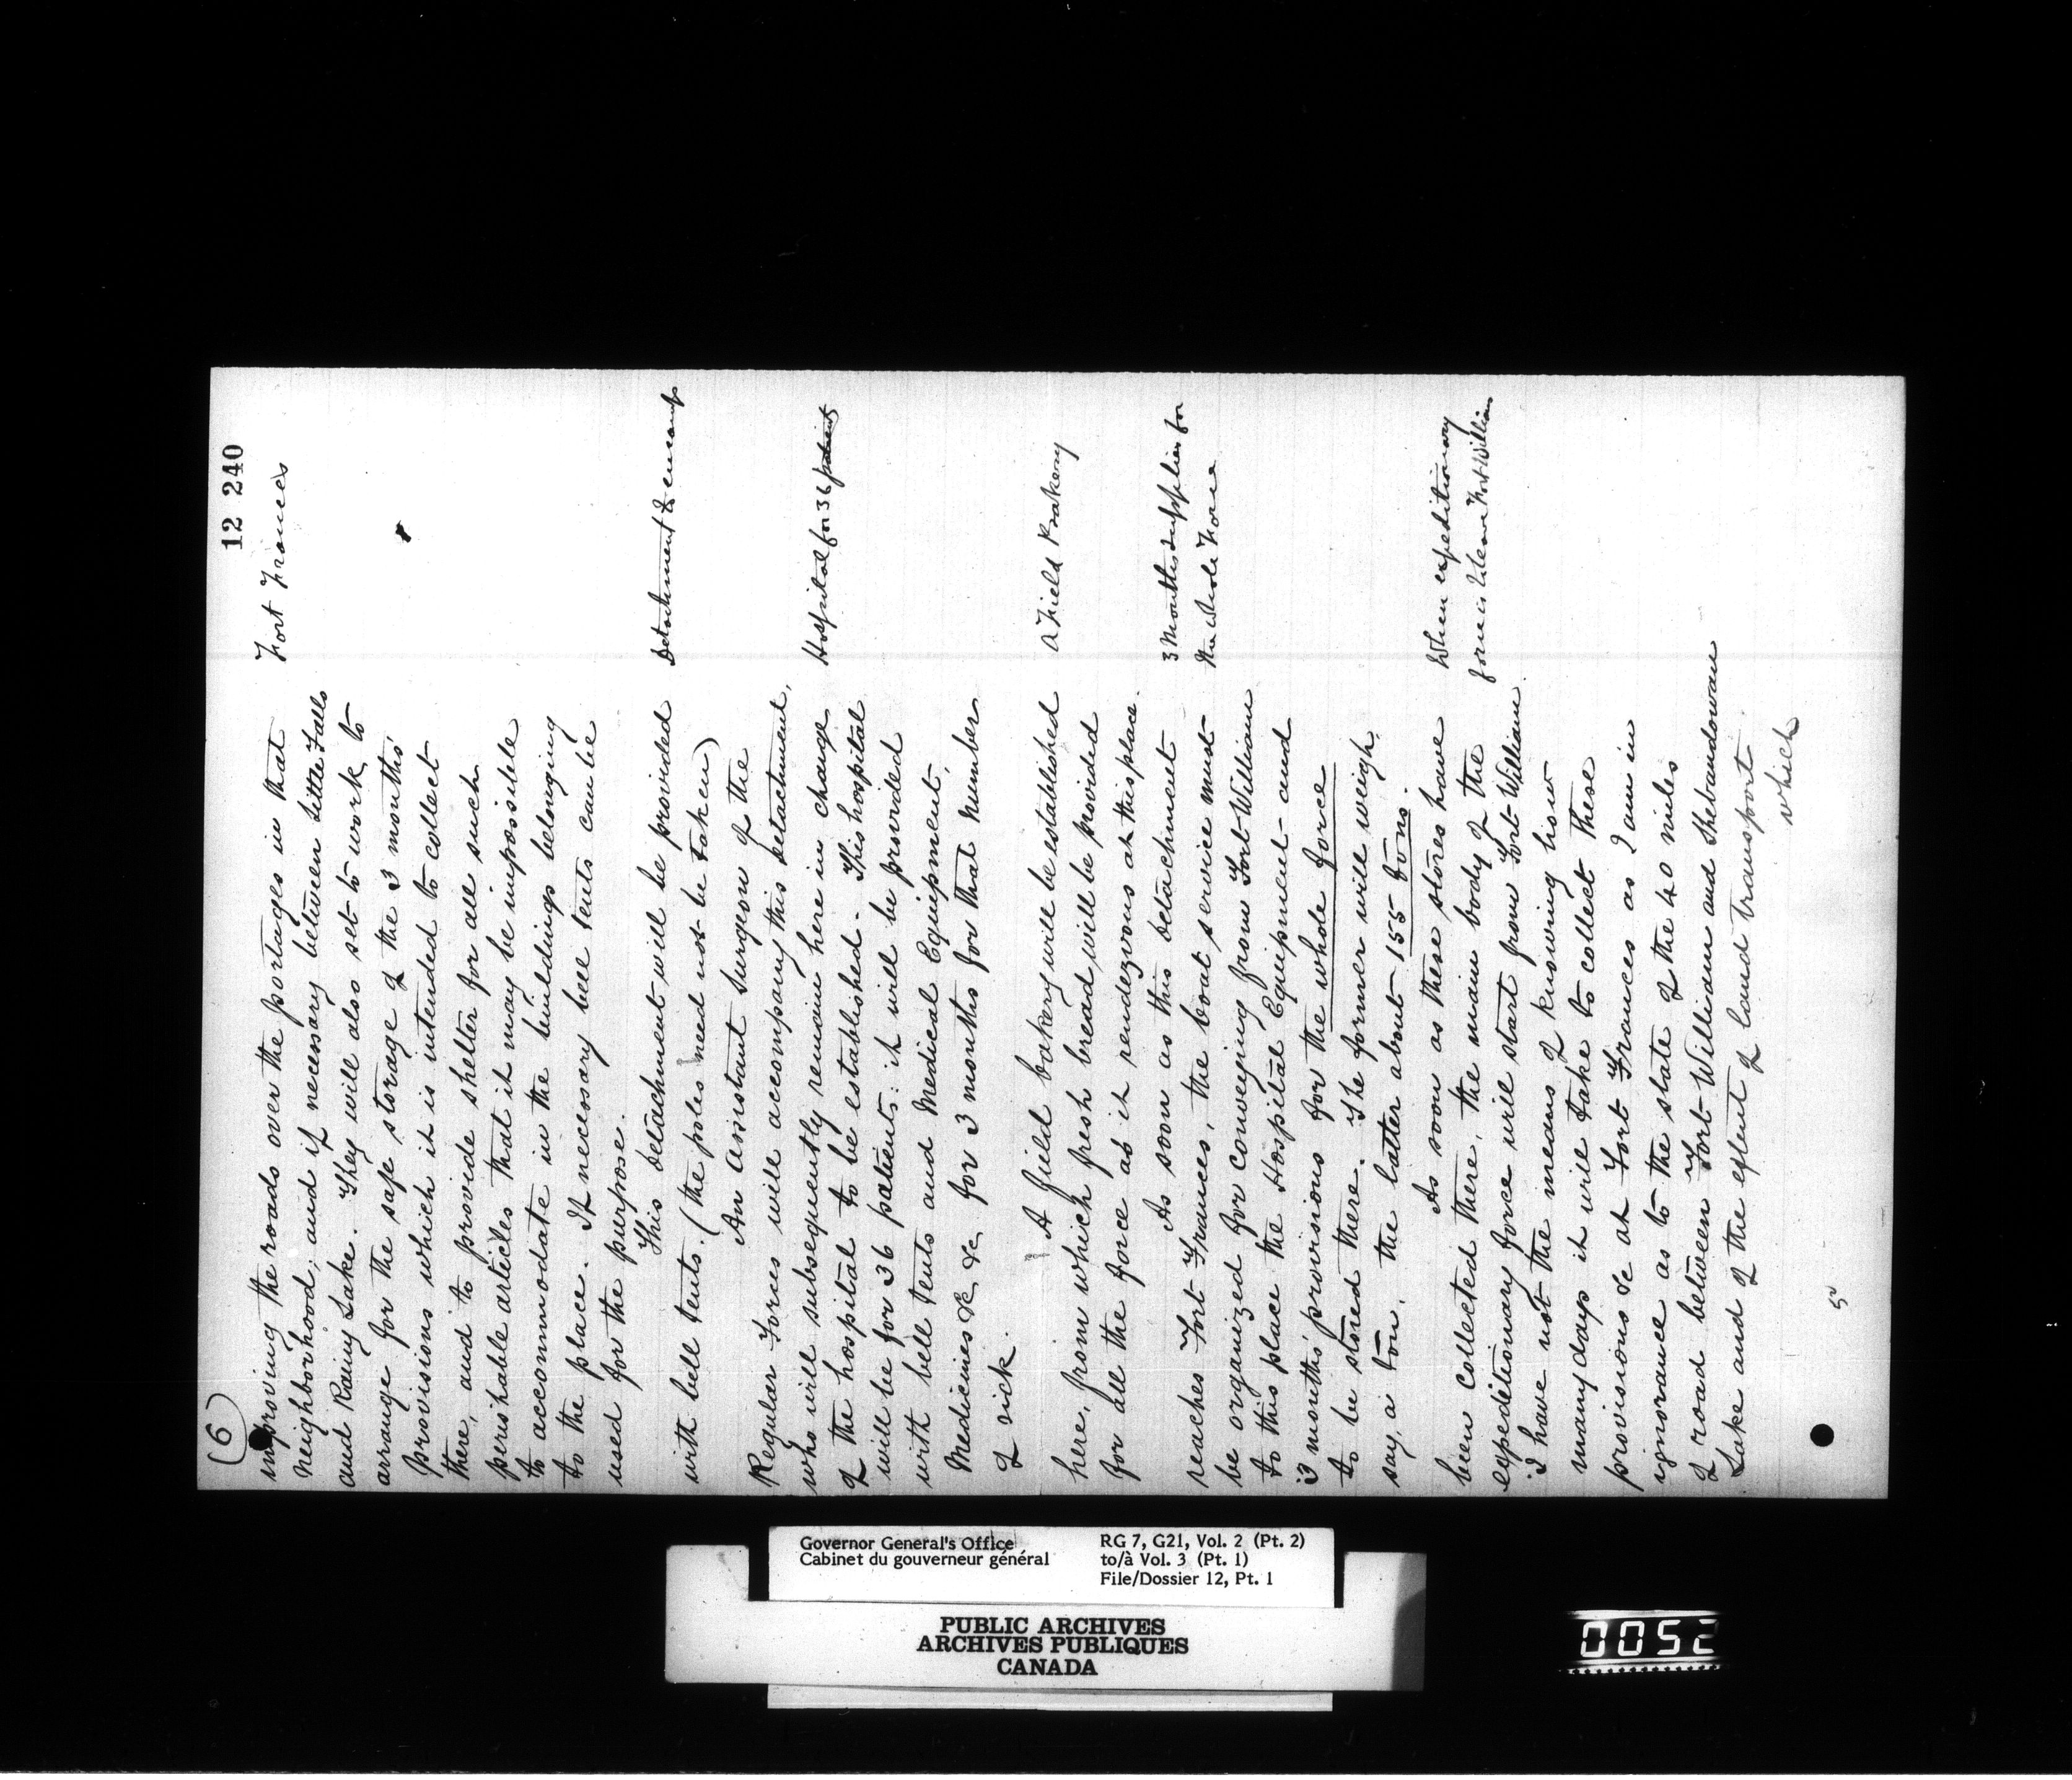 (6)
12 240
improving the roads over the portages in that
neighborhood; and if necessary between Little Falls
and Rainy Lake. They will also set to work to
arrange for the safe storage of the 3 months'
provisions which it is intended to collect
there, and to provide shelter for all such
perishable articles that it may be impossible
to accommodate in the buildings belonging
to the place. If necessary bell tents can be
used for the purpose.
This detachment will be provided
with bell tents. (the poles need not be taken)
An assistant Surgeon of the
Regular Forces will accompany this detachment,
who will subsequently remain here in charge
of the hospital to be established. This hospital
will be for 36 patients: it will be provided
with bell tents and Medical Equipment,
Medicines &c &c for 3 months for that number
of sick.
A field bakery will be established
here, from which fresh bread will be provided
for all the force as it rendezvous at this place.
As soon as this detachment
reaches Fort Frances, the boat service must
be organized for conveying from Fort William
to this place the Hospital Equipment and
3 months' provisions for the whole force
to be stored there. The former will weigh,
say, a ton, the latter about 155 tons.
As soon as these stores have
been collected there, the main body of the
expeditionary force will start from Fort William.
I have not the means of knowing how
many days it will take to collect these
provisions &c at Fort Frances as I am in
ignorance as to the state of the 40 miles
of road between Fort William and Shebandowan
Lake and of the extent of land transport
which
Fort Frances
Detachment to encamp
Hospital for 36 patients
A Field Bakery
3 Months supplies for
the whole Force
When expeditionary
force is to leave Fort William
5
Governor General's Office
Cabinet du gouverneur général
RG 7, G21, Vol. 2 (Pt. 2)
to/à Vol. 3 (Pt. 1)
File/Dossier 12, Pt. 1
PUBLIC ARCHIVES
ARCHIVES PUBLIQUES
CANADA
0052